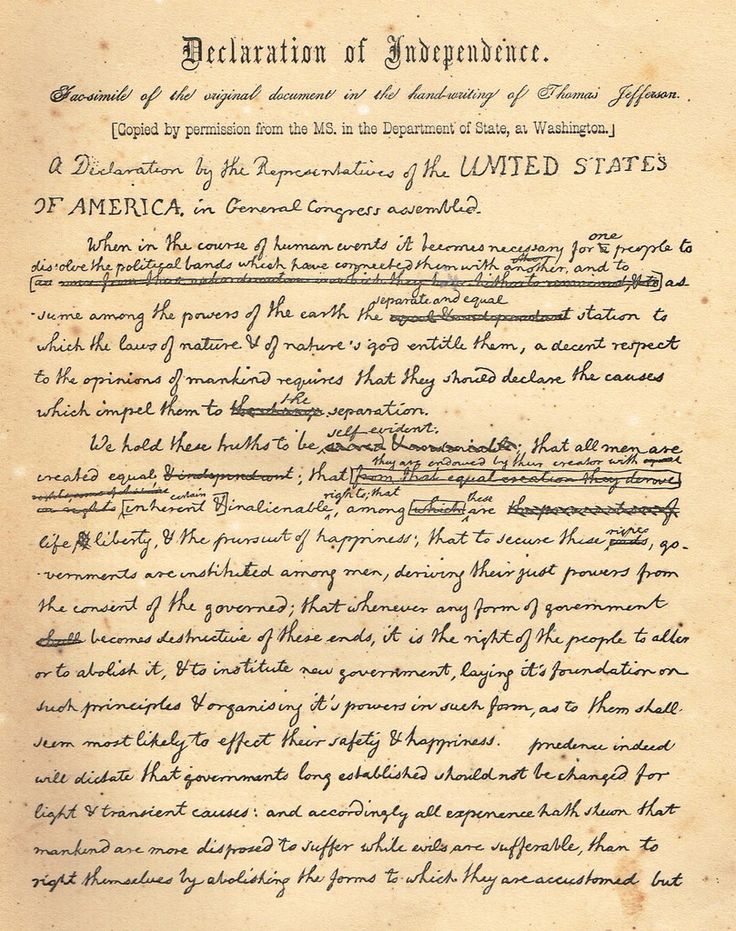 Declaration of Independence.
Fac-simile of the original document in the hand-writing of Thomas Jefferson.
[Copied by permission from the MS. in the Department of State, at Washington.]
A Declaration by the Representatives of the UNITED STATES
OF AMERICA, in General Congress assembled.
one
When in the course of human events it becomes necessary for a people to
dissolve the political bands which have connected them with another, and to
as
separate and equal
-sume among the powers of the earth the equal & independant station to
which the laws of nature & of nature's god entitle them, a decent respect
to the opinions of mankind requires that they should declare the causes
the
which impel them to the change separation.
self evident:
We hold these truths to be sacred & undeniable; that all men are
they are endowed by their creator with
created equal & independant; that [from that equal creation they derive
certain
rights; that
these
[inherent &] inalienable, among [which] are the preservation of
rights
life, & liberty, & the pursuit of happiness; that to secure these ends, go-
-vernments are instituted among men, deriving their just powers from
the consent of the governed; that whenever any form of government
shall becomes destructive of these ends, it is the right of the people to alter
or to abolish it, & to institute new government, laying it's foundation on
such principles & organising it's powers in such form, as to them shall
seem most likely to effect their safety & happiness. prudence indeed
will dictate that governments long established should not be changed for
light & transient causes: and accordingly all experience hath shewn that
mankind are more disposed to suffer while evils are sufferable, than to
right themselves by abolishing the forms to which they are accustomed but